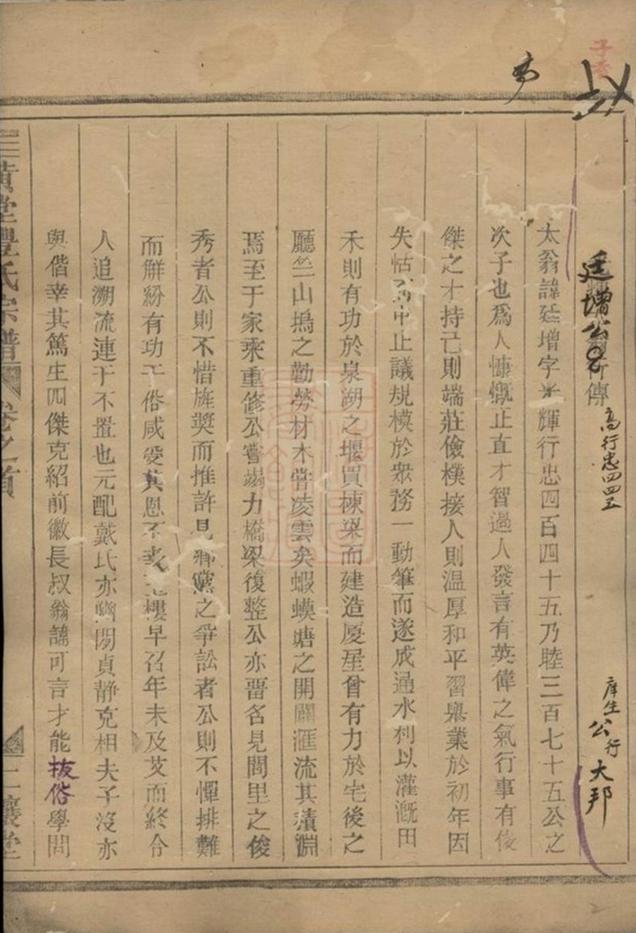 廷增公 傳 高行忠四四五 庠生公行大邦
太翁諱廷增字光輝行忠四百四十五乃睦三百七十五公之
次子也為人慷慨正直才智過人發言有英偉之氣行事有俊
傑之才持己則端莊儉樸接人則溫厚和平習舉業於初年因
失怙 中止議規模於眾務一動筆而遂成通水利以灌溉田
禾則有功於泉湖之堰買棟梁而建造廈屋曾有力於宅後之
廳竺山塢之勤勞材木嘗凌雲矣蝦蟆塘之開闢滙流其潰淵
焉至于家乘重修公嘗竭力橋梁復整公亦畱名見閭里之俊
秀者公則不惜旌獎而推許見鄉黨之爭訟者公則不憚排難
而解紛有功于俗咸愛其恩不 樓早召年未及艾而終令
人追溯流連于不置也元配戴氏亦幽閒貞靜克相夫子沒亦
與偕幸其篤生四傑克紹前徽長叔翁諱可言才能拔俗學問
黃堂豐氏宗譜 卷之首